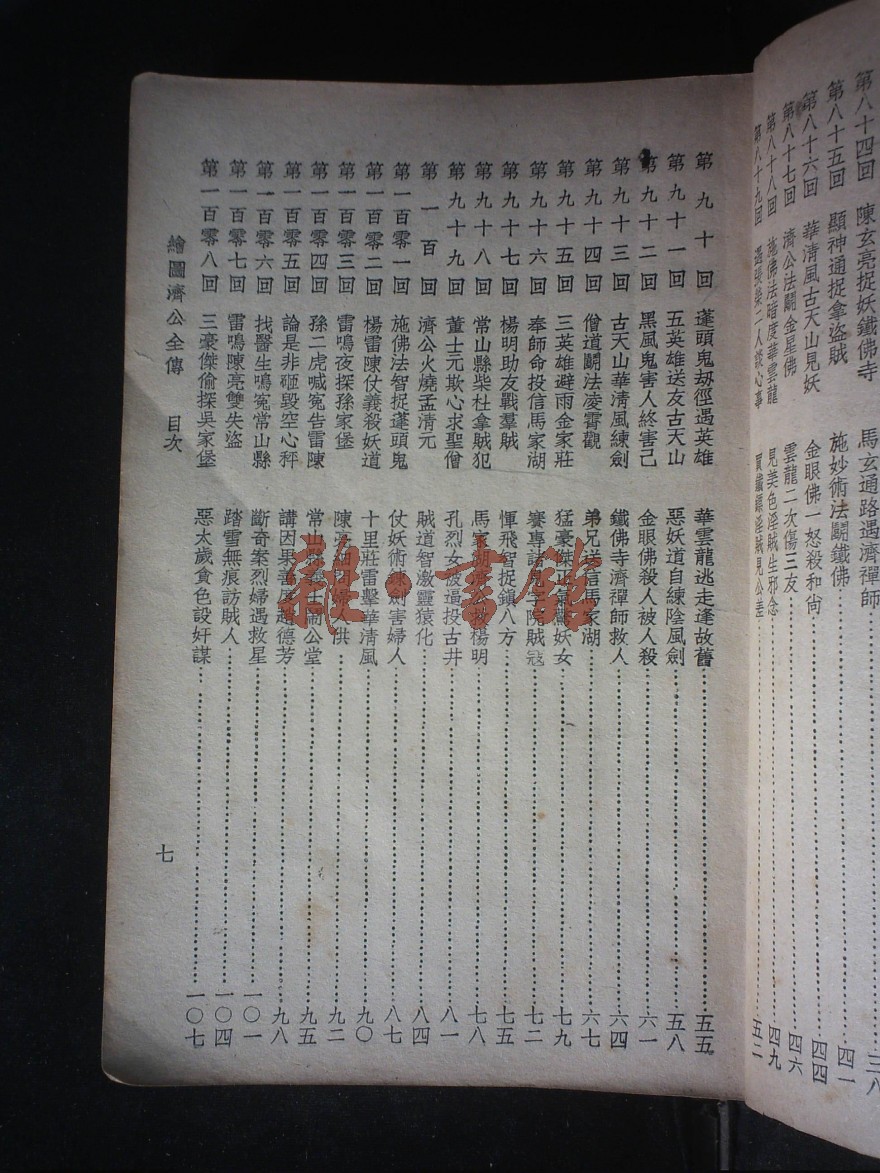 第八十四回 陳玄亮捉妖鐵佛寺 馬玄通路遇濟禪師 三八
第八十五回 顯神通捉拿盜賊 施妙術法鬭鐵佛 四一
第八十六回 華清風古天山見妖 金眼佛一怒殺和尙 四四
第八十七回 濟公法鬭金星佛 雲龍二次傷三友 四六
第八十八回 施佛法暗度華雲龍 見美色淫賊生邪念 四九
第八十九回 遇張榮二人談心事 買鐵鏢淫賊見公差 五二
第九十回 蓬頭鬼刼徑遇英雄 華雲龍逃走逢故舊 五五
第九十一回 五英雄送友古天山 惡妖道自練陰風劍 五八
第九十二回 黑風鬼害人終害己 金眼佛殺人被人殺 六一
第九十三回 古天山華清風練劍 鐵佛寺濟禪師救人 六四
第九十四回 僧道鬭法凌霄觀 弟兄送信馬家湖 六七
第九十五回 三英雄避雨金家莊 猛豪傑 妖女 七九
第九十六回 奉師命投信馬家湖 賽專諸 院賊寇 七二
第九十七回 楊明助友戰羣賊 惲飛智捉鎭八方 七五
第九十八回 常山縣柴杜拿賊犯 馬家湖濟公救楊明 七八
第九十九回 董士元欺心求聖僧 孔烈女被逼投古井 八一
第一百回 濟公火燒孟清元 賊道智激靈猿化 八四
第一百零一回 施佛法智捉蓬頭鬼 仗妖術練劍害婦人 八七
第一百零二回 楊雷陳仗義殺妖道 十里莊雷擊華清風 九〇
第一百零三回 雷鳴夜探孫家堡 陳亮細問婦人供 九二
第一百零四回 孫二虎喊寃告雷陳 常山縣義士鬧公堂 九五
第一百零五回 論是非砸毀空心秤 講因果善度趙德芳 九八
第一百零六回 找醫生鳴寃常山縣 斷奇案烈婦遇救星 一〇一
第一百零七回 雷鳴陳亮雙失盜 踏雪無痕訪賊人 一〇四
第一百零八回 三豪傑偷探吳家堡 惡太歲貪色設奸謀 一〇七
繪圖濟公全傳 目次 七
雜·書館